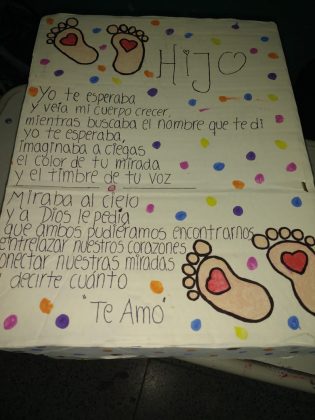 HIJO
Yo te esperaba
y veía mi cuerpo crecer,
mientras buscaba el nombre que te di
yo te esperaba,
imaginaba a ciegas
el color de tu mirada
y el timbre de tu voz
Miraba al cielo
y a Dios le pedía
que ambos pudieramos encontrarnos
entrelazar nuestros corazones
onectar nuestras miradas
decirte cuánto
"Te Amo"